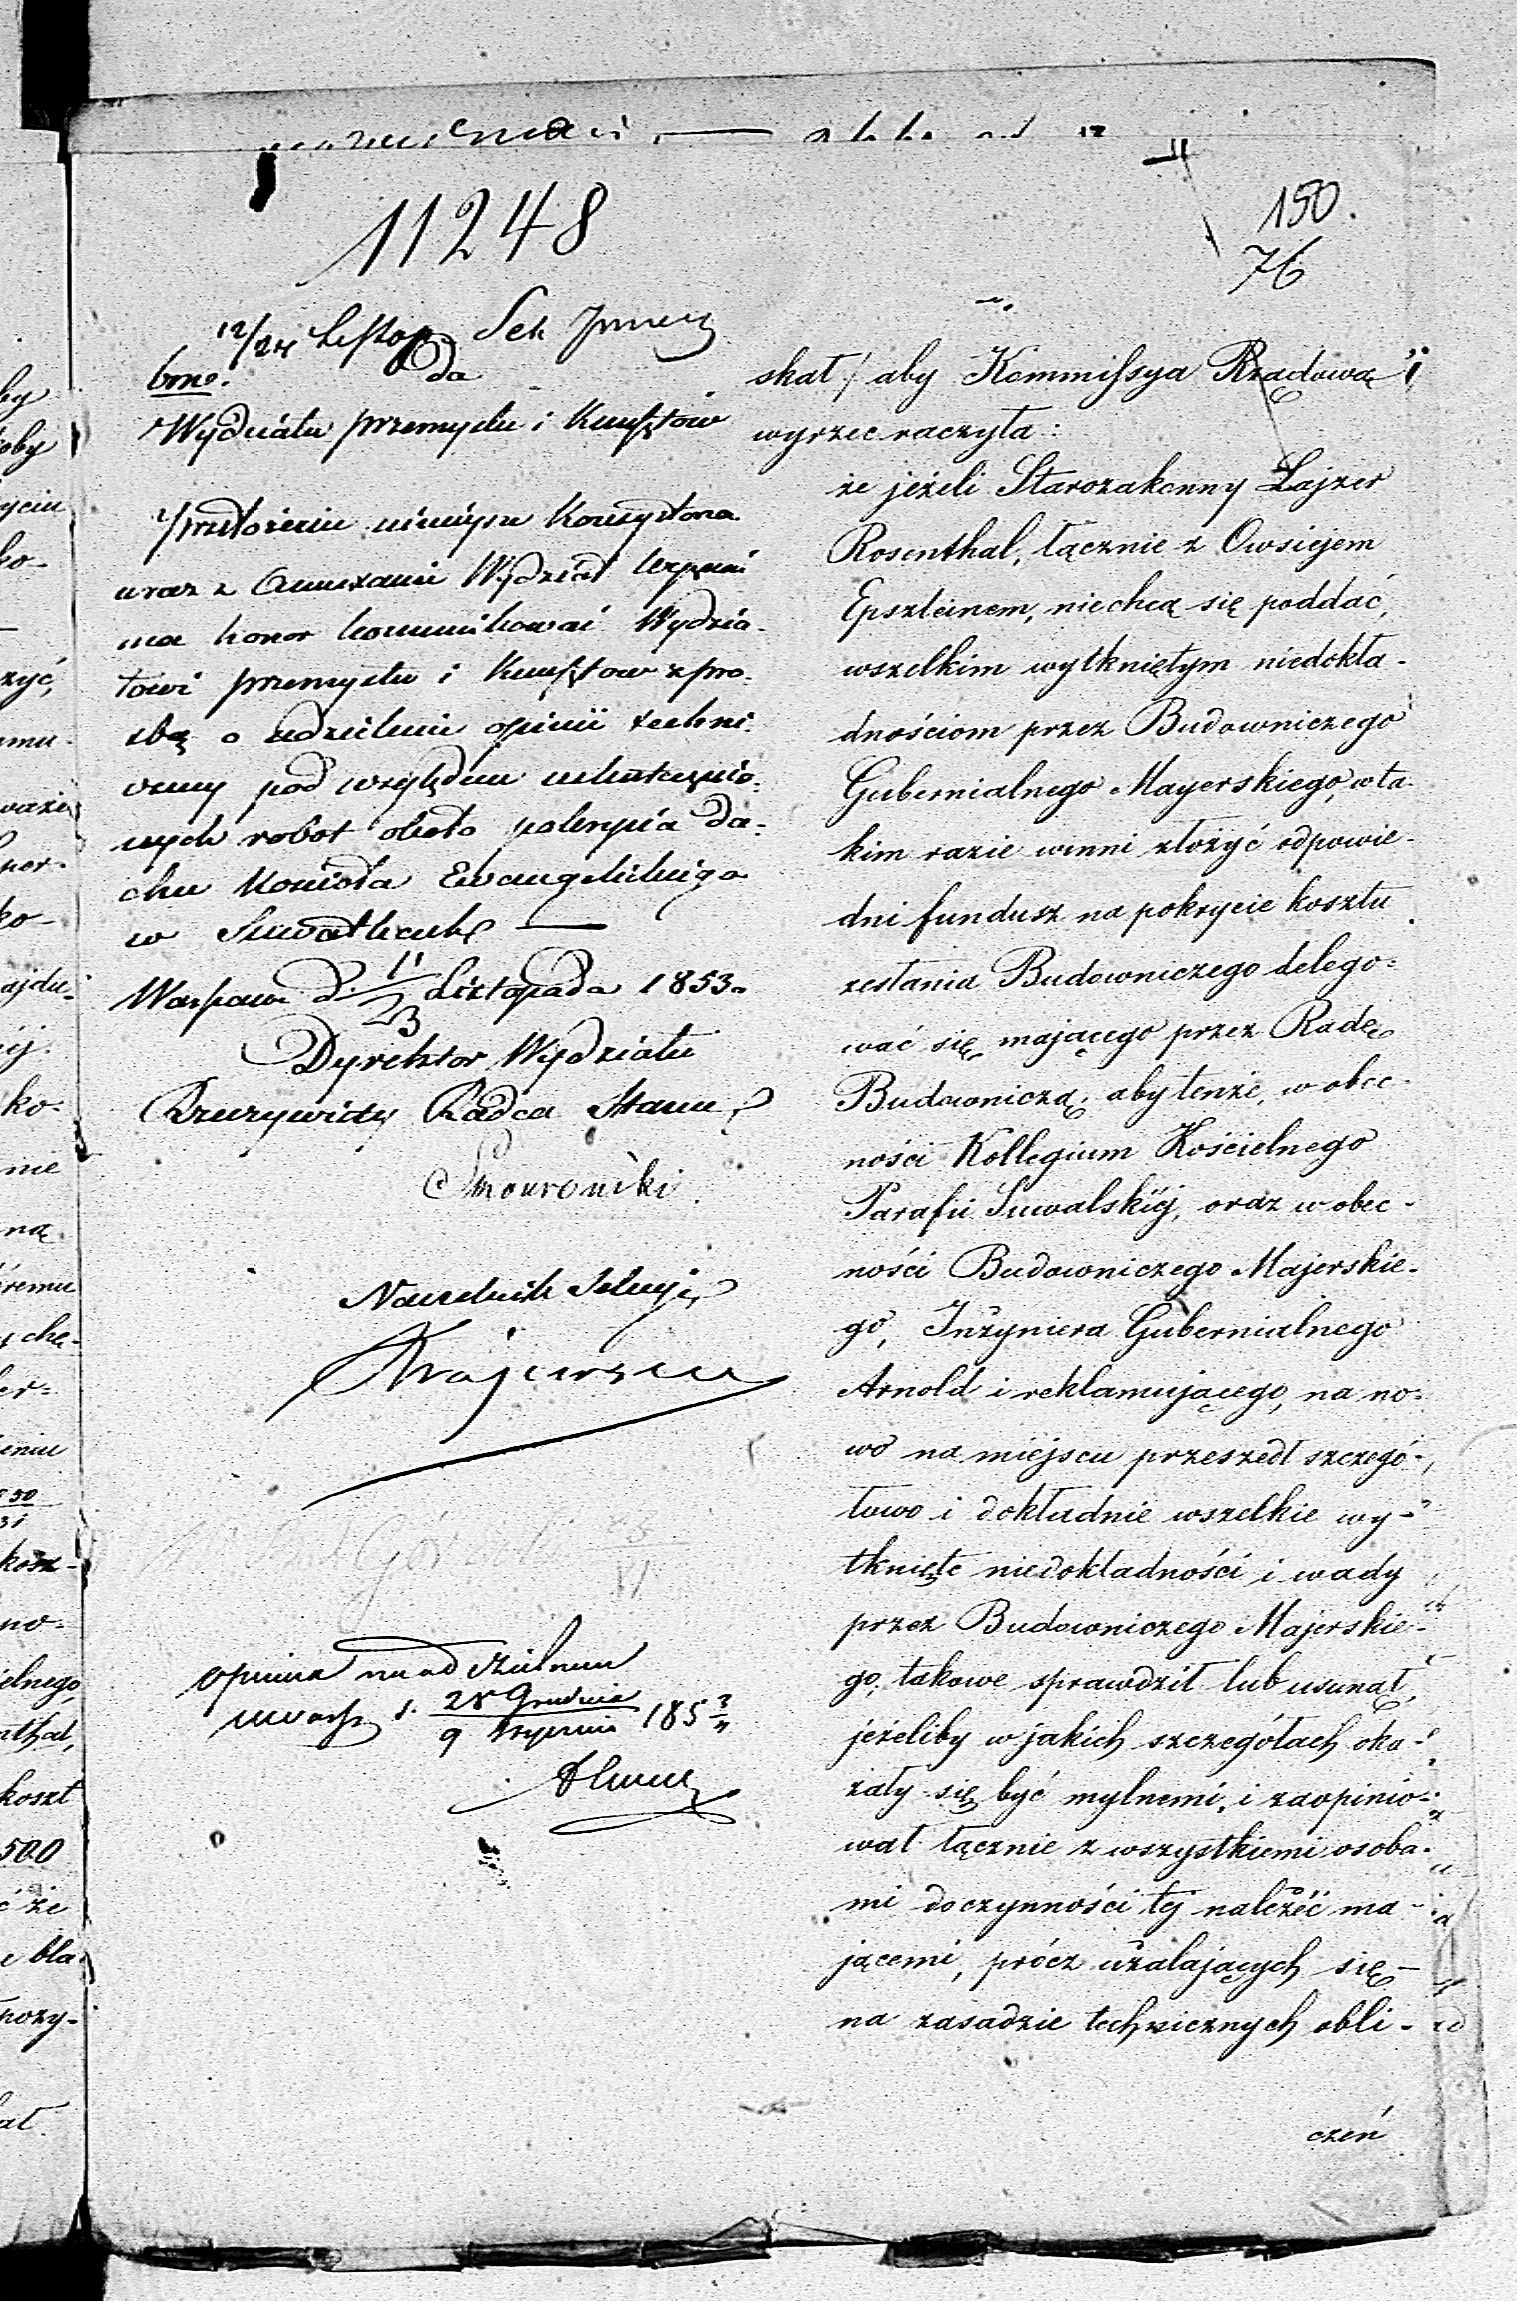 11248
150.
76
12/24 Listop Sek Przem
bro. Do
Wydziału przemysłu i Kunsztów
Przełożenie niniejsze Konsystorza
wraz z Annexami Wydział Wyznań
ma honor komunikować Wydzia-
łowi przemysłu i Kunsztów z pro-
sbą o udzielenie opinii techni-
cznej pod względem uskutecznio-
nych robot około pokrycia da-
chu Kościoła Ewangelickiego
w Suwałkach
Warszawa d. 11/23 Listopada 1853.
Dyrektor Wydziału
Rzeczywisty Radca Stanu
Naczelnik Sekcyi
opinia na oddzielnem
d. 28 Grudnia / 9 Stycznia 1853/4
skał / aby Kommissya Rządowa
wyrzec raczyła:
że jeżeli Starozakonny Lajzer
Rosenthal, łącznie z Owsiejem
Epszteinem, niechcą się poddać,
wszelkim wytkniętym niedokła-
dnościom przez Budowniczego
Gubernialnego Mayerskiego, w ta-
kim razie winni złożyć odpowie-
dni fundusz na pokrycie kosztu
zesłania Budowniczego delego-
wać się mającego przez Radę
Budowniczą; aby tenże, w obec-
ności Kollegium Kościelnego
Parafii Suwalskiej, oraz w obec-
ności Budowniczego Majerskie-
go, Inżyniera Gubernialnego
Arnold i reklamującego, na no-
wo na miejscu przeszedł szczegó-
łowo i dokładnie wszelkie wy-
tknięte niedokładności i wady
przez Budowniczego Majerskie-
go, takowe sprawdził lub usunął,
jeżeliby w jakich szczegółach oka-
zały się być mylnemi, i zaopinio-
wał łącznie z wszystkiemi osoba-
mi do czynności tej należeć ma-
jącemi, prócz użalających się-
na zasadzie technicznych obli-
czeń